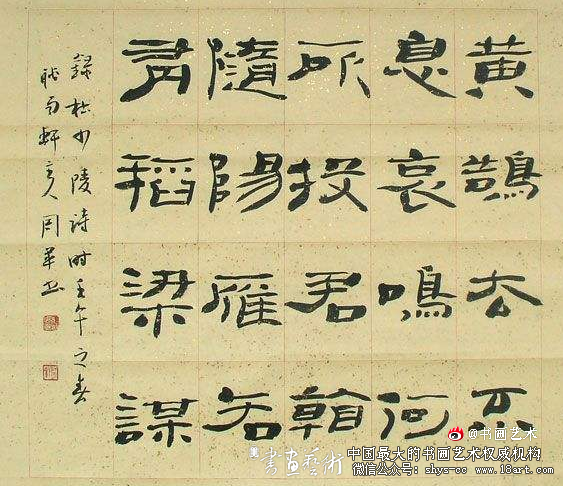 黄鵠去不
息哀鳴何
所投君看
隨陽雁各
有稻梁謀
錄杜少陵詩時壬午之春
聴雨軒
周華书
@书画艺术
書画藝術
中国最大的书画艺术权威机构
微信公众号: shys-cc www.18art.com